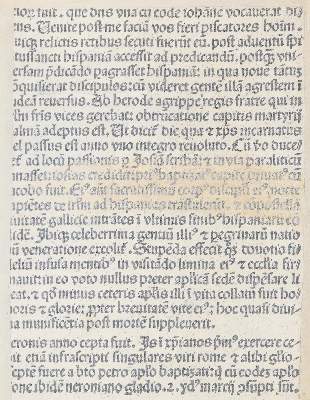 nor fuit. que dñs vna cū eodē iohāne vocauerat di
ns. Uenite post me faciā vos fieri piscatores hoīm
uicz relictis retibus secuti fuerūt eū. post aduentū spi
tussancti hispaniā accessit ad predicandū. postq̄ vni
ersam p̄dicādo pagrasset hispaniā: in qua noue tātūz
q̄uisierat discipulos: cū videret gente illā agrestem i
ideā reuersus. Ab herode agrippe regis fratre qui in
filij fr̄is vices gerebat: obtrūcatione capitis martyrij
almā adeptus est. Ut dicit die qua ⁊ xp̄s incarnatus
el passus est anno vno integro reuoluto. Cū ho duce
ret ad locū passionis ⁊ Josiā scribā: ⁊ in via paraliticū
credidit baptizat
cobo fuit. sacratissimū corp⁹ discipli
de ad hispanias trastulerūt. ⁊ cōpostella
gallicie intrātes ī vltimis finib⁹ hispaniarū cō
lidē. Ibiqz celeberrima gentiū illi⁹ ⁊ pegrinarū natio
ū veneratione excolit̄. Stupēda effecit q̄z deuotio fi
deliū inuisa mentib⁹ in visitādo limina ei⁹ ⁊ ecclīa fir
nauit: in eo voto nullus preter aplicā sedē dispēsare li
eat. ⁊ qd̄ minus ceteris aplīs illi ī vita collatū fuit ho
noris ⁊ glorie: p̄pter breuitatē vite ei⁹: hoc quasi diui
a munificētia post mortē suppleuerit.
eronis anno cepta fuit. Js ī xp̄ianos p̄m⁹ exercere ce
it etiā infrascripti singulares viri rome ⁊ alibi glio
epte fuere a btō petro aplo baptizati: q̄ cū eodez aplo
one ibidē neroniano gladio. 2. yd⁹ marcij